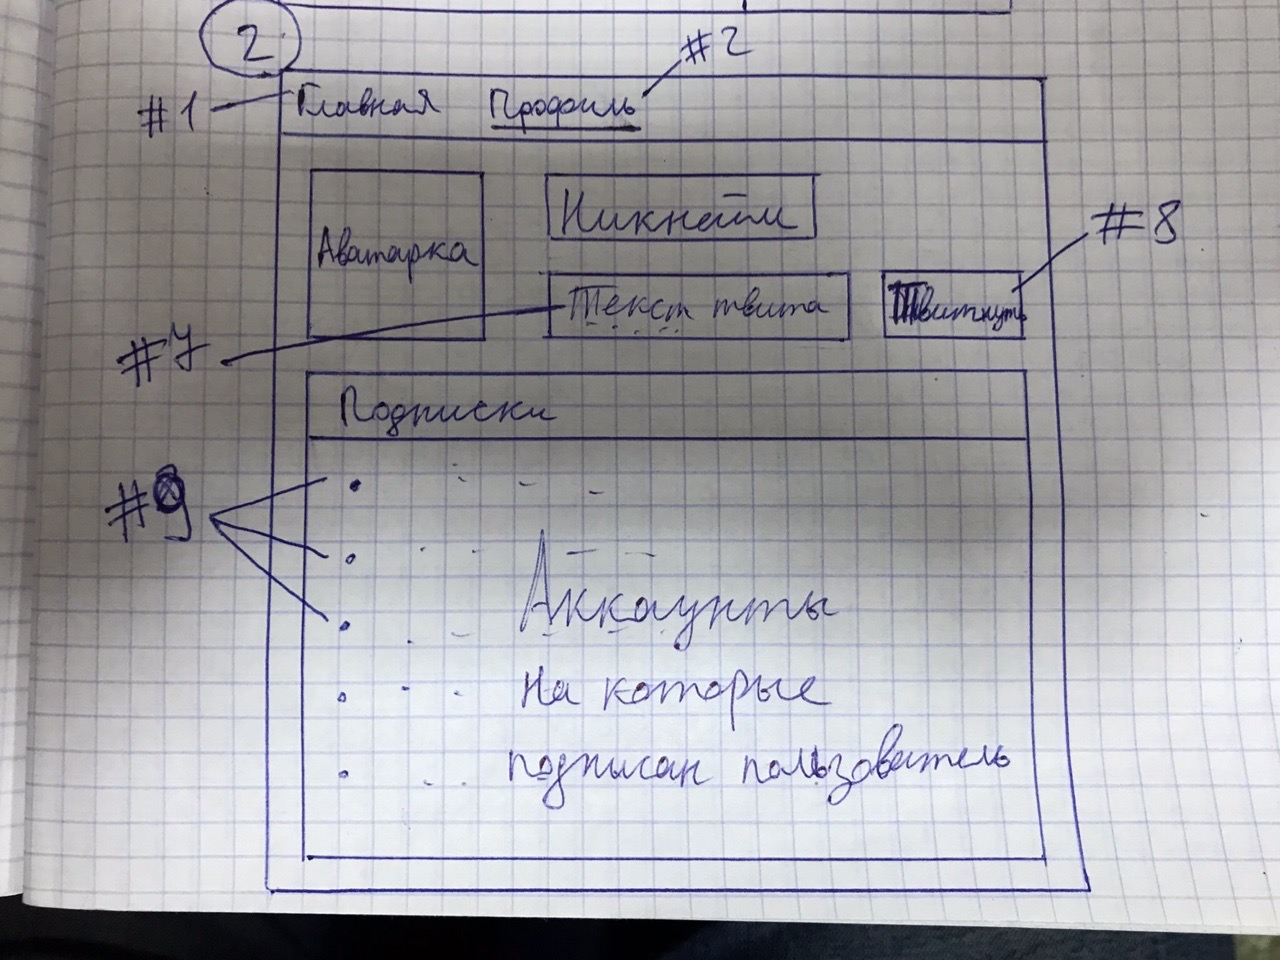 2
#2
#1 Главная Профиль
Никнейм
#8
Аватарка
Текст твита
Твитнуть
#7
Подписки
#9
Аккаунты
на которые
подписан пользователь